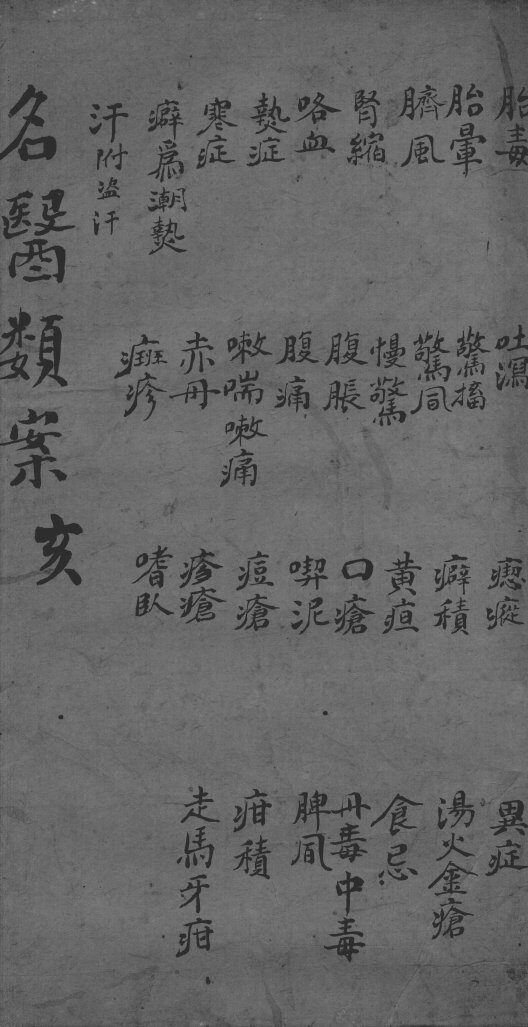 胎毒
胎暈
臍風
腎縮
咯血
熱症
寒症
癖爲潮熱
汗附盗汗
吐瀉
驚搐
驚風
慢驚
腹脹
腹痛
嗽喘嗽痛
赤丹
癍疹
瘛瘲
癖積
黄疸
口瘡
喫泥
痘瘡
疹瘡
嗜臥
異症
湯火金瘡
食忌
丹毒中毒
脾風
疳積
走馬牙疳
名醫類案 亥